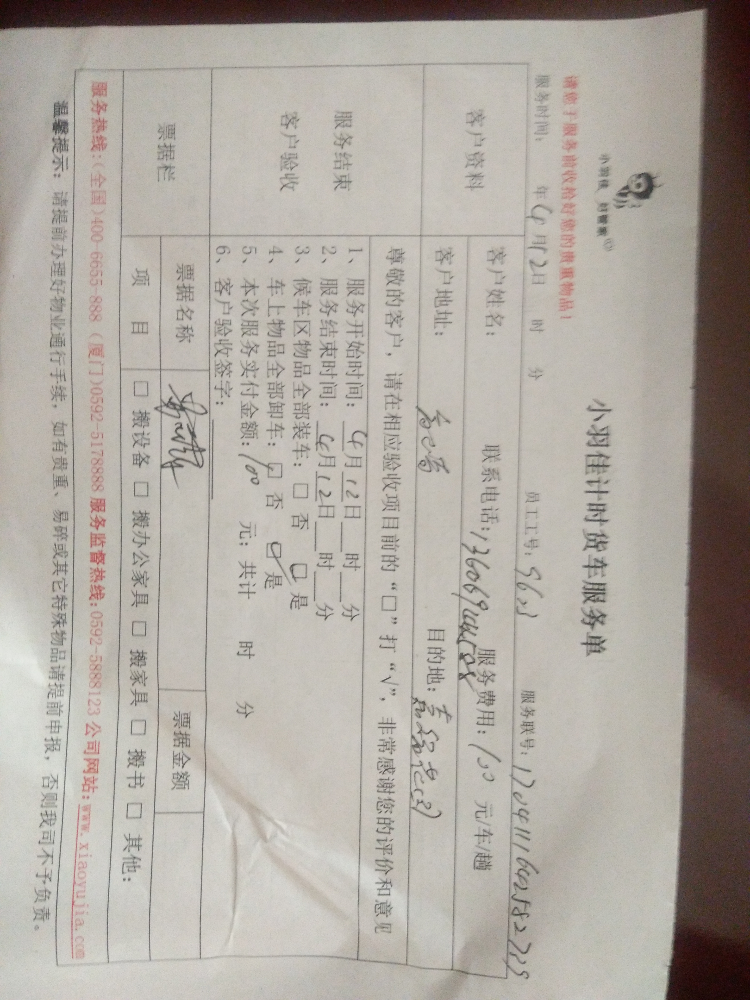 小羽佳 好管家
小羽佳计时货车服务单
请您于服务前收拾好您的贵重物品!
服务时间: 年4月12日 时 分 员工工号: 9603 服务联号:
客户资料
客户姓名: 联系电话: 服务费用: 100 元/车/趟
客户地址: 目的地:
尊敬的客户,请在相应验收项目前的“□”打“√”,非常感谢您的评价和意见
服务结束
客户验收
1、服务开始时间: 4月12日 时 分
2、服务结束时间: 4月12日 时 分
3、候车区物品全部装车: □ 否 □ 是
4、车上物品全部卸车: □ 否 □ 是
5、本次服务实付金额: 100 元; 共计 时 分
6、客户验收签字:
票据栏
票据名称 票据金额
项 目 □ 搬设备 □ 搬办公家具 □ 搬家具 □ 搬书 □ 其他:
服务热线:(全国)400-6655-888 (厦门)0592-5178888 服务监督热线:0592-5888123 公司网站:www.xiaoyujia.com
温馨提示: 请提前办理好物业通行手续,如有贵重、易碎或其它特殊物品请提前申报,否则我司不予负责。